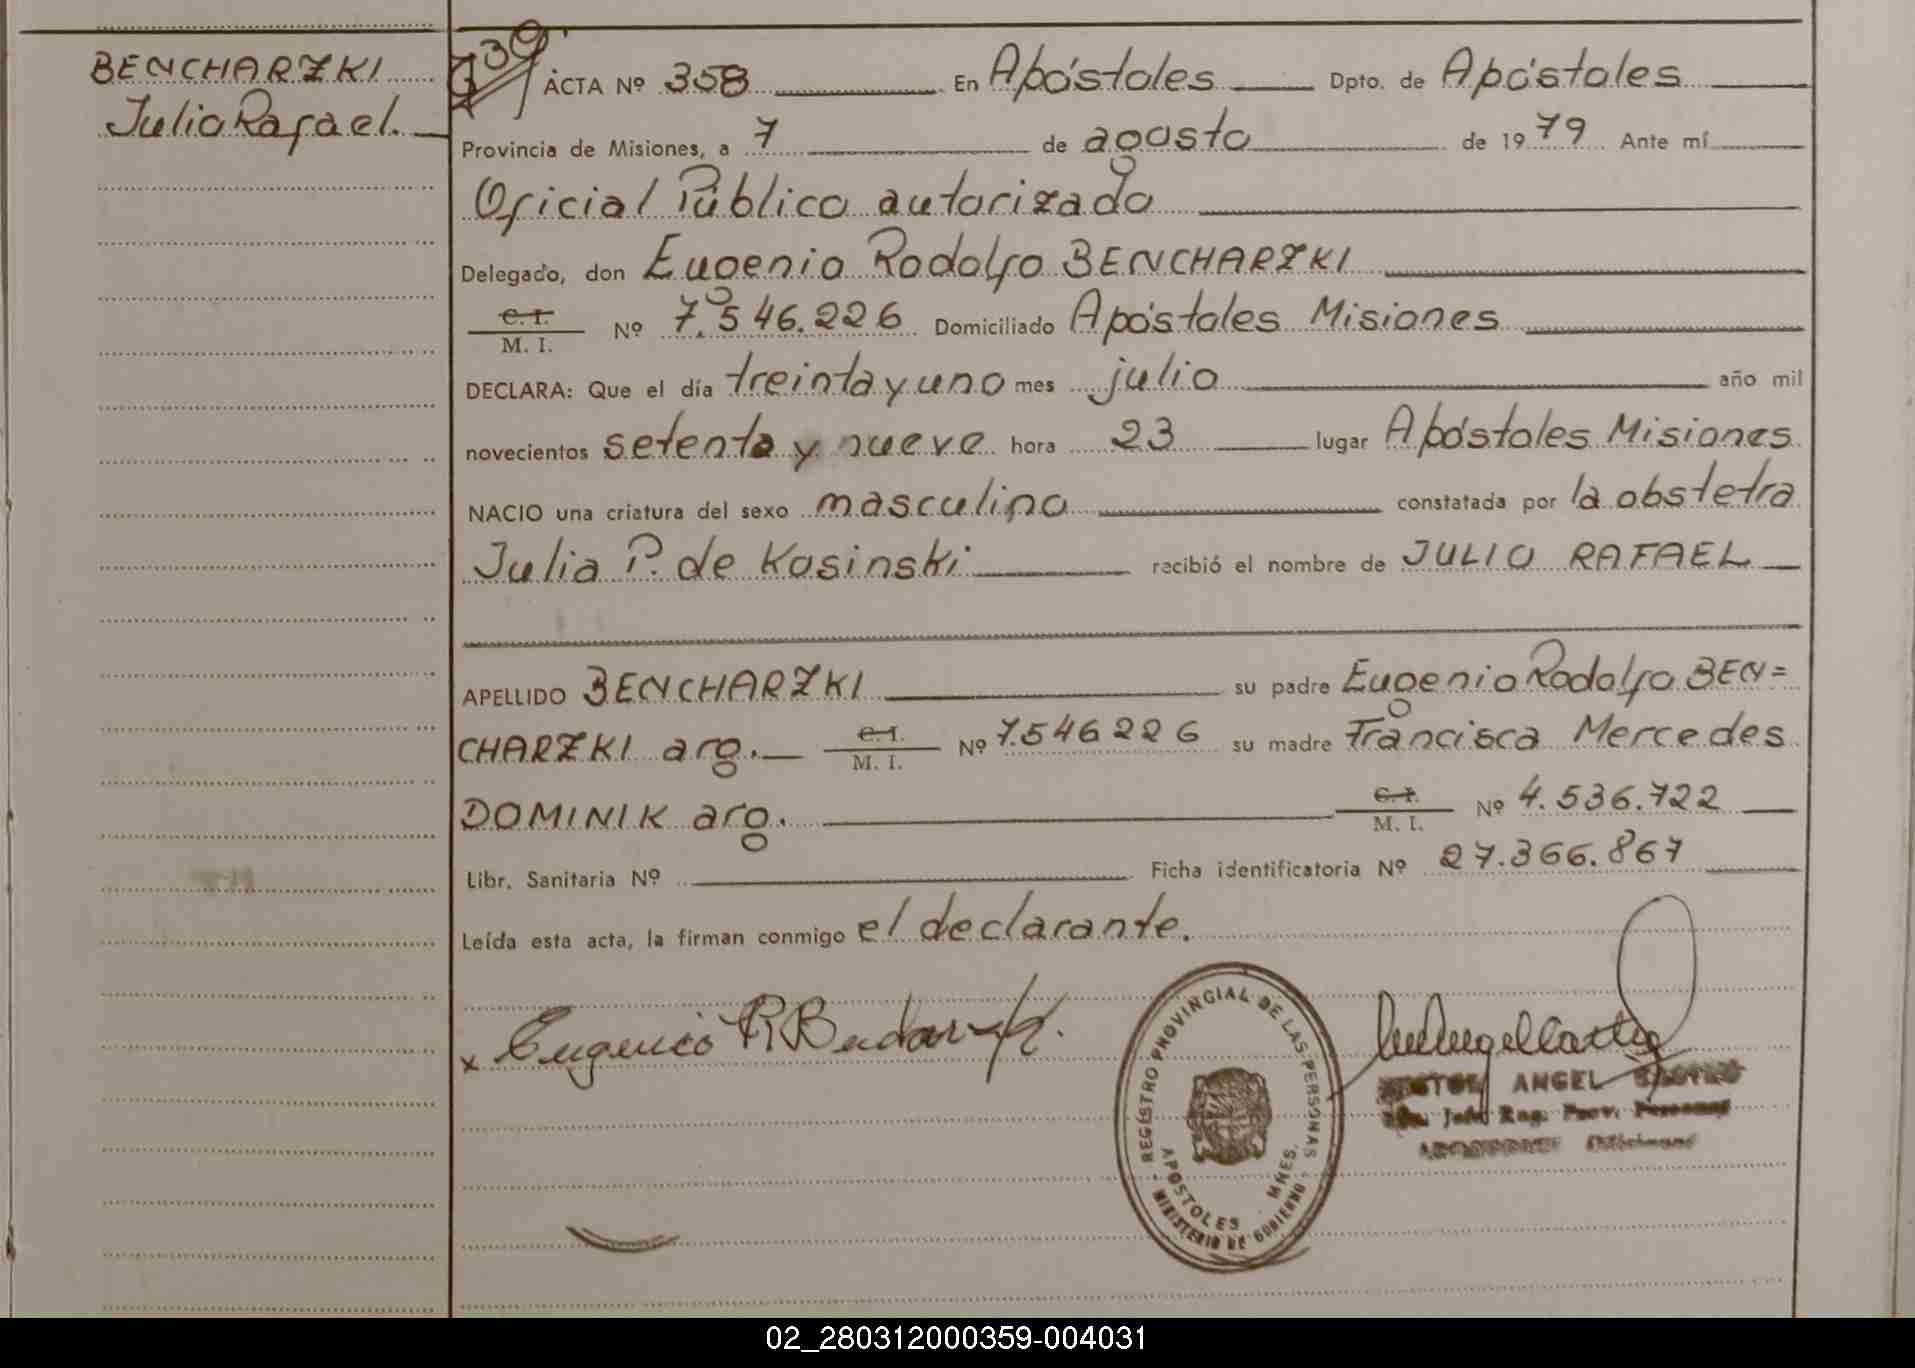 BENCHARZKI
Julio Rafael.
ACTA Nº 358 En Apóstoles Dpto. de Apóstoles
Provincia de Misiones, a 7 de agosto de 1979 Ante mí
Oficial Público autorizado
Delegado, don Eugenio Rodolfo BENCHARZKI
C. I.
M. I. Nº 7.546.226 Domiciliado Apóstoles Misiones
DECLARA: Que el día treinta y uno mes julio año mil
novecientos setenta y nueve hora 23 lugar Apóstoles Misiones
NACIO una criatura del sexo masculino constatada por la obstetra
Julia P. de Kosinski recibió el nombre de JULIO RAFAEL
APELLIDO BENCHARZKI su padre Eugenio Rodolfo BEN=
CHARZKI arg. C. I. M. I. Nº 7.546226 su madre Francisca Mercedes
DOMINIK arg. C. I. M. I. Nº 4.536.722
Libr. Sanitaria Nº Ficha identificatoria Nº 27.366.867
Leída esta acta, la firman conmigo el declarante.
x Eugenio R
REGISTRO PROVINCIAL DE LAS PERSONAS
APOSTOLES MNES.
MINISTERIO DE GOBIERNO
ANGEL
Jefe Reg. Prov. Personas
02_280312000359-004031